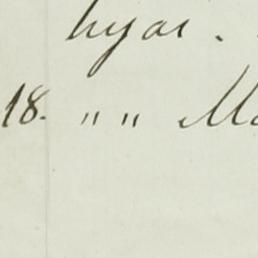 hyar.
18. " " Ma